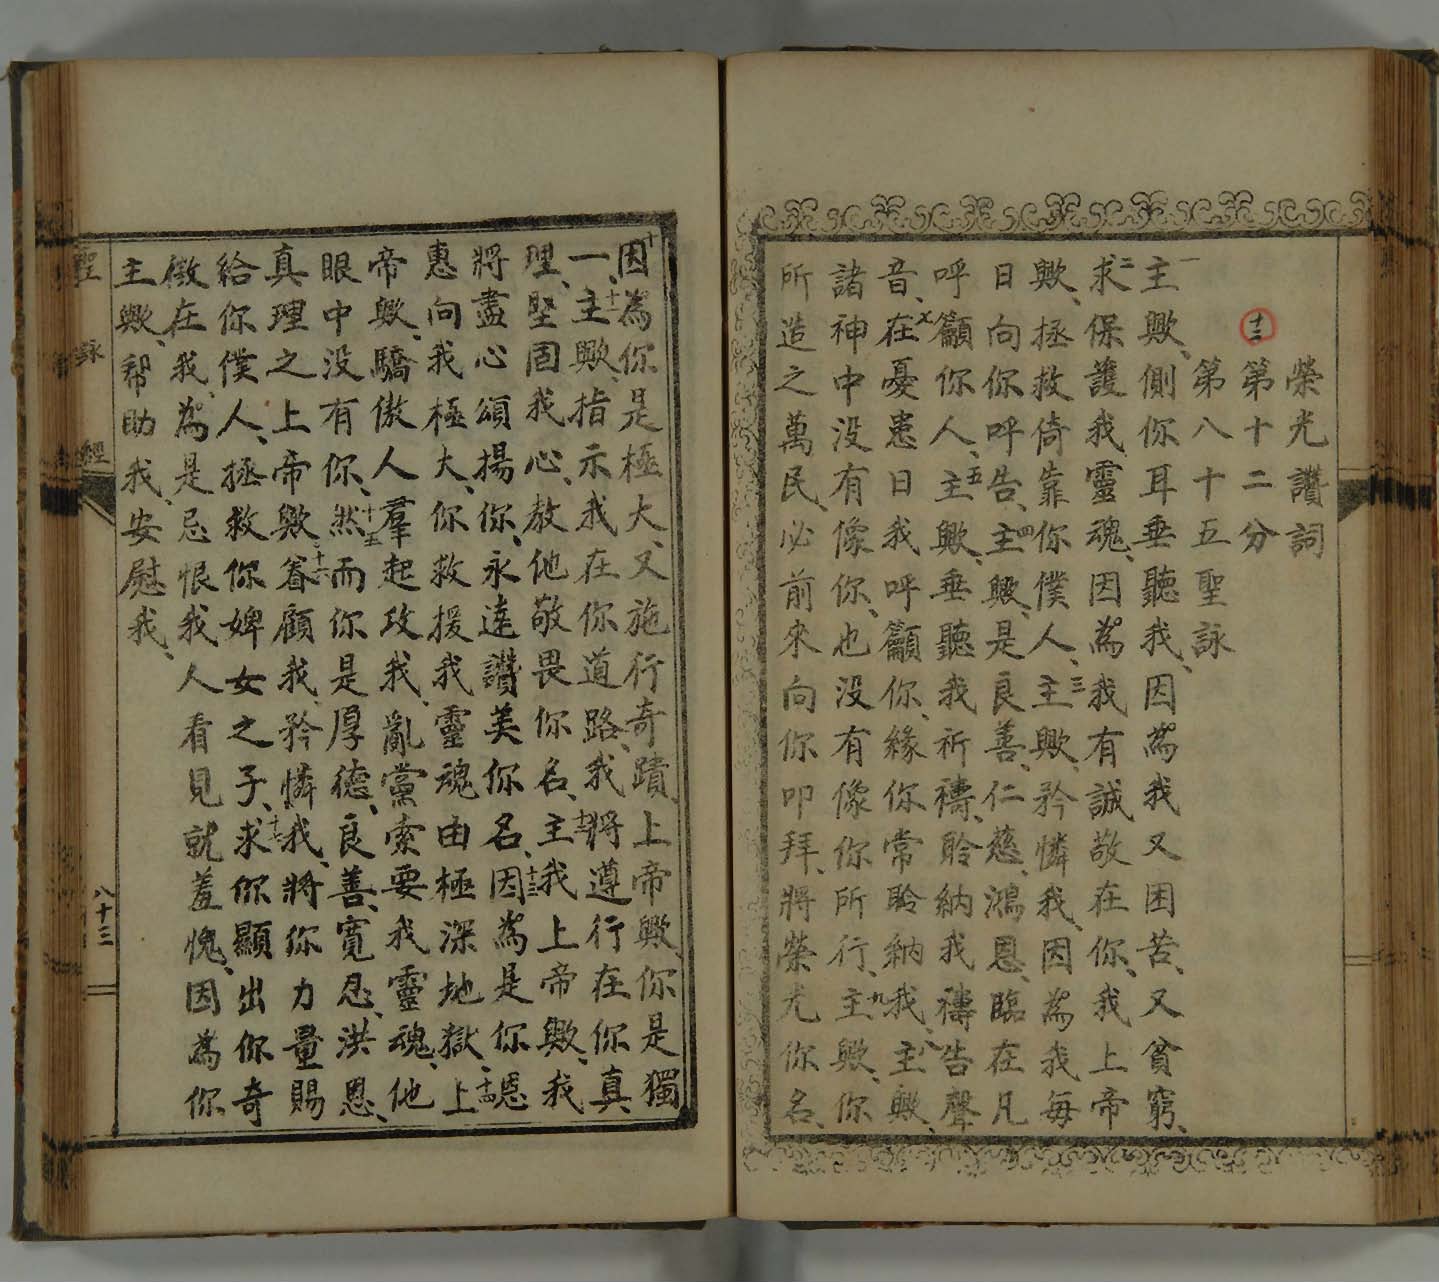 榮光讚詞
十二
第十二分
第八十五聖詠
一主歟、側你耳垂聽我、因為我又困苦、又貧窮、
二求保護我靈魂、因為我有誠敬在你、我上帝
歟、拯救倚靠你僕人、三主歟、矜憐我、因為我每
日向你呼告、四主歟、是良善、仁慈、鴻恩、臨在凡
呼籲你人、五主歟、垂聽我祈禱、聆納我禱告聲
音、在憂患日我呼籲你、緣你常聆納我、八主歟、
諸神中没有像你、也没有像你所行、九主歟、你
所造之萬民、必前來向你叩拜、將榮光你名、
十因為你是極大、又施行奇蹟、上帝歟、你是獨
一、十一主歟、指示我在你道路、我將遵行在你真
理、堅固我心、教他敬畏你名、十二主我上帝歟、我
將盡心頌揚你、永遠讚美你名、十三因為是你恩
惠向我極大、你救援我靈魂由極深地獄、十四上
帝歟、驕傲人羣起攻我、亂黨索要我靈魂、他
眼中没有你、十五然而你是厚德、良善、寬忍、洪恩、
真理之上帝歟、十六眷顧我、矜憐我、將你力量賜
給你僕人、拯救你婢女之子、十七求你顯出你奇
徵在我、為是忌恨我人看見就羞愧、因為你
主歟、幫助我、安慰我、
聖詠經
八十三